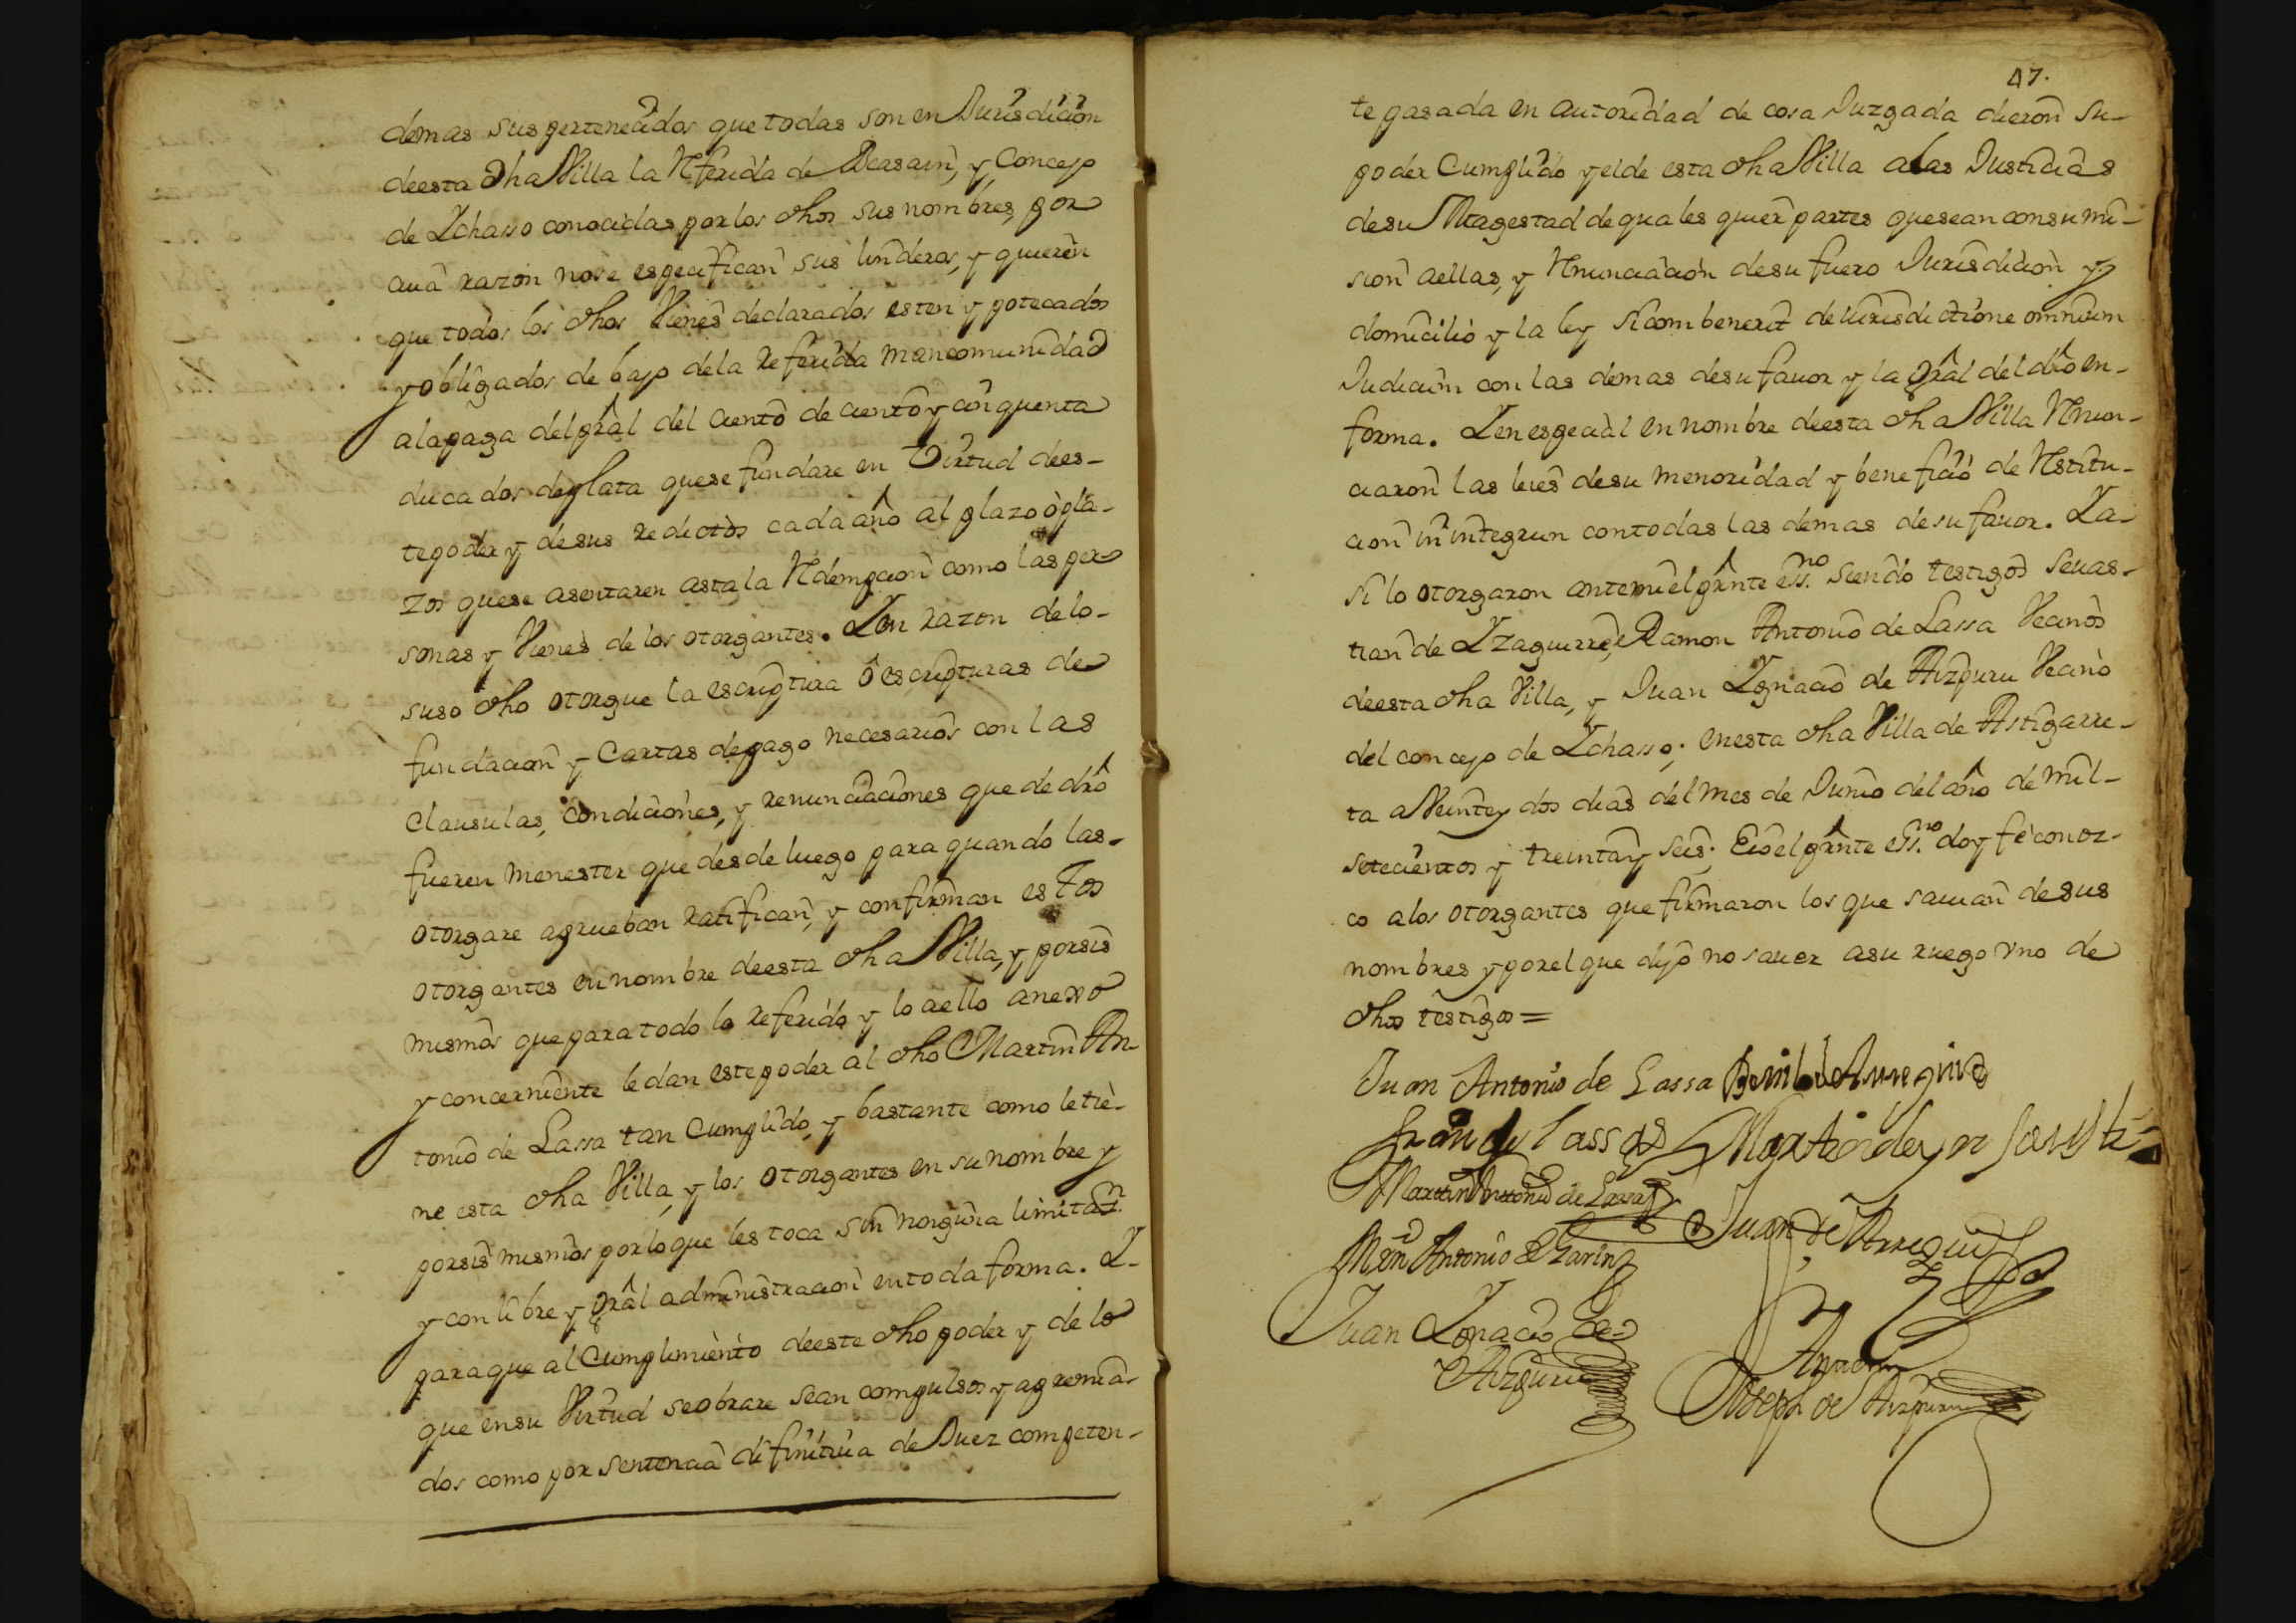 demas sus pertenecidos que todas son en Jurisdicion
deesta dha Villa la Referida de Beasain, y Concejo
de Ychasso conocidas por los dhos sus nombres, por
cuia razon nose especifican sus linderos, y quieren
que todos los dhos Vienes declarados esten ypotecados
y obligados de bajo dela referida mancomunidad
ala paga del pral del Cento de ciento y cinquenta
ducados de plata que se fundare en Virtud dees-
te poder y de sus redictos cada año al plazo ò pla-
zos quese asentaren asta la Redempcion como las per-
sonas y Vienes de los otorgantes. Yen razon delo-
suso dho otorgue la escriptura ô escripturas de
fundacion y Cartas de pago necesarios con las
Clausulas, condiciones, y renunciaciones que de dro
fueren menester que desde luego para quando las-
otorgare aprueban ratifican, y confirman estos
otorgantes en nombre deesta dha Villa, y porsis
mismos que para todo lo referido y lo aello anexo
y concerniente le dan este poder al dho Martin An-
tonio de Lassa tan Cumplido, y bastante como le tie-
ne esta dha Villa, y los otorgantes en su nombre y
porsis mismos por loque les toca sin ninguna limitaon.
y con libre y gral administracion entoda forma. Y-
paraque al Cumplimiento deeste dho poder y de lo
que ensu Virtud se obrare sean compulsos y apremia-
dos como por sentencia difinitiua de Juez competen-
47.
te pasada en autoridad de cosa Juzgada dieron su-
poder Cumplido y elde esta dha Villa alas Justicias
desu Magestad de quales quier partes quesean consumi-
sion aellas, y Renunciacion desu fuero Jurisdicion y
domicilio y la ley sicombenerit deiurisdictione omnium
Judicum con las demas desu fauor y la gral del dro en-
forma. Yen especial en nombre deesta dha Villa Renun-
ciaron las leies desu menoridad y beneficio de Restitu-
cion in integrun contodas las demas desu fauor. Ya-
si lo otorgaron antemi el prnte essno. siendo testigos Seuas-
tian de Yzaguirre, Ramon Antonio de Lassa Vecinos
deesta dha Villa, y Juan Ygnacio de Aizpuru Vecino
del concejo de Ychasso; enesta dha Villa de Astigarre-
ta a Veinte y dos dias del mes de Junio del año de mil-
setecientos y treinta y seis; Eioel prnte essno. doy fe conoz-
co alos otorgantes que firmaron los que sauian de sus
nombres y porel que dijo no sauer asu ruego vno de
dhos testigos =
Juan Antonio de Lassa
Martin Antonio de Lassa
Juan de Arregui
Mrn Antonio de Garin
Juan Ygnacio de
Aizpuru
Antemi
Joseph de Aizpuru